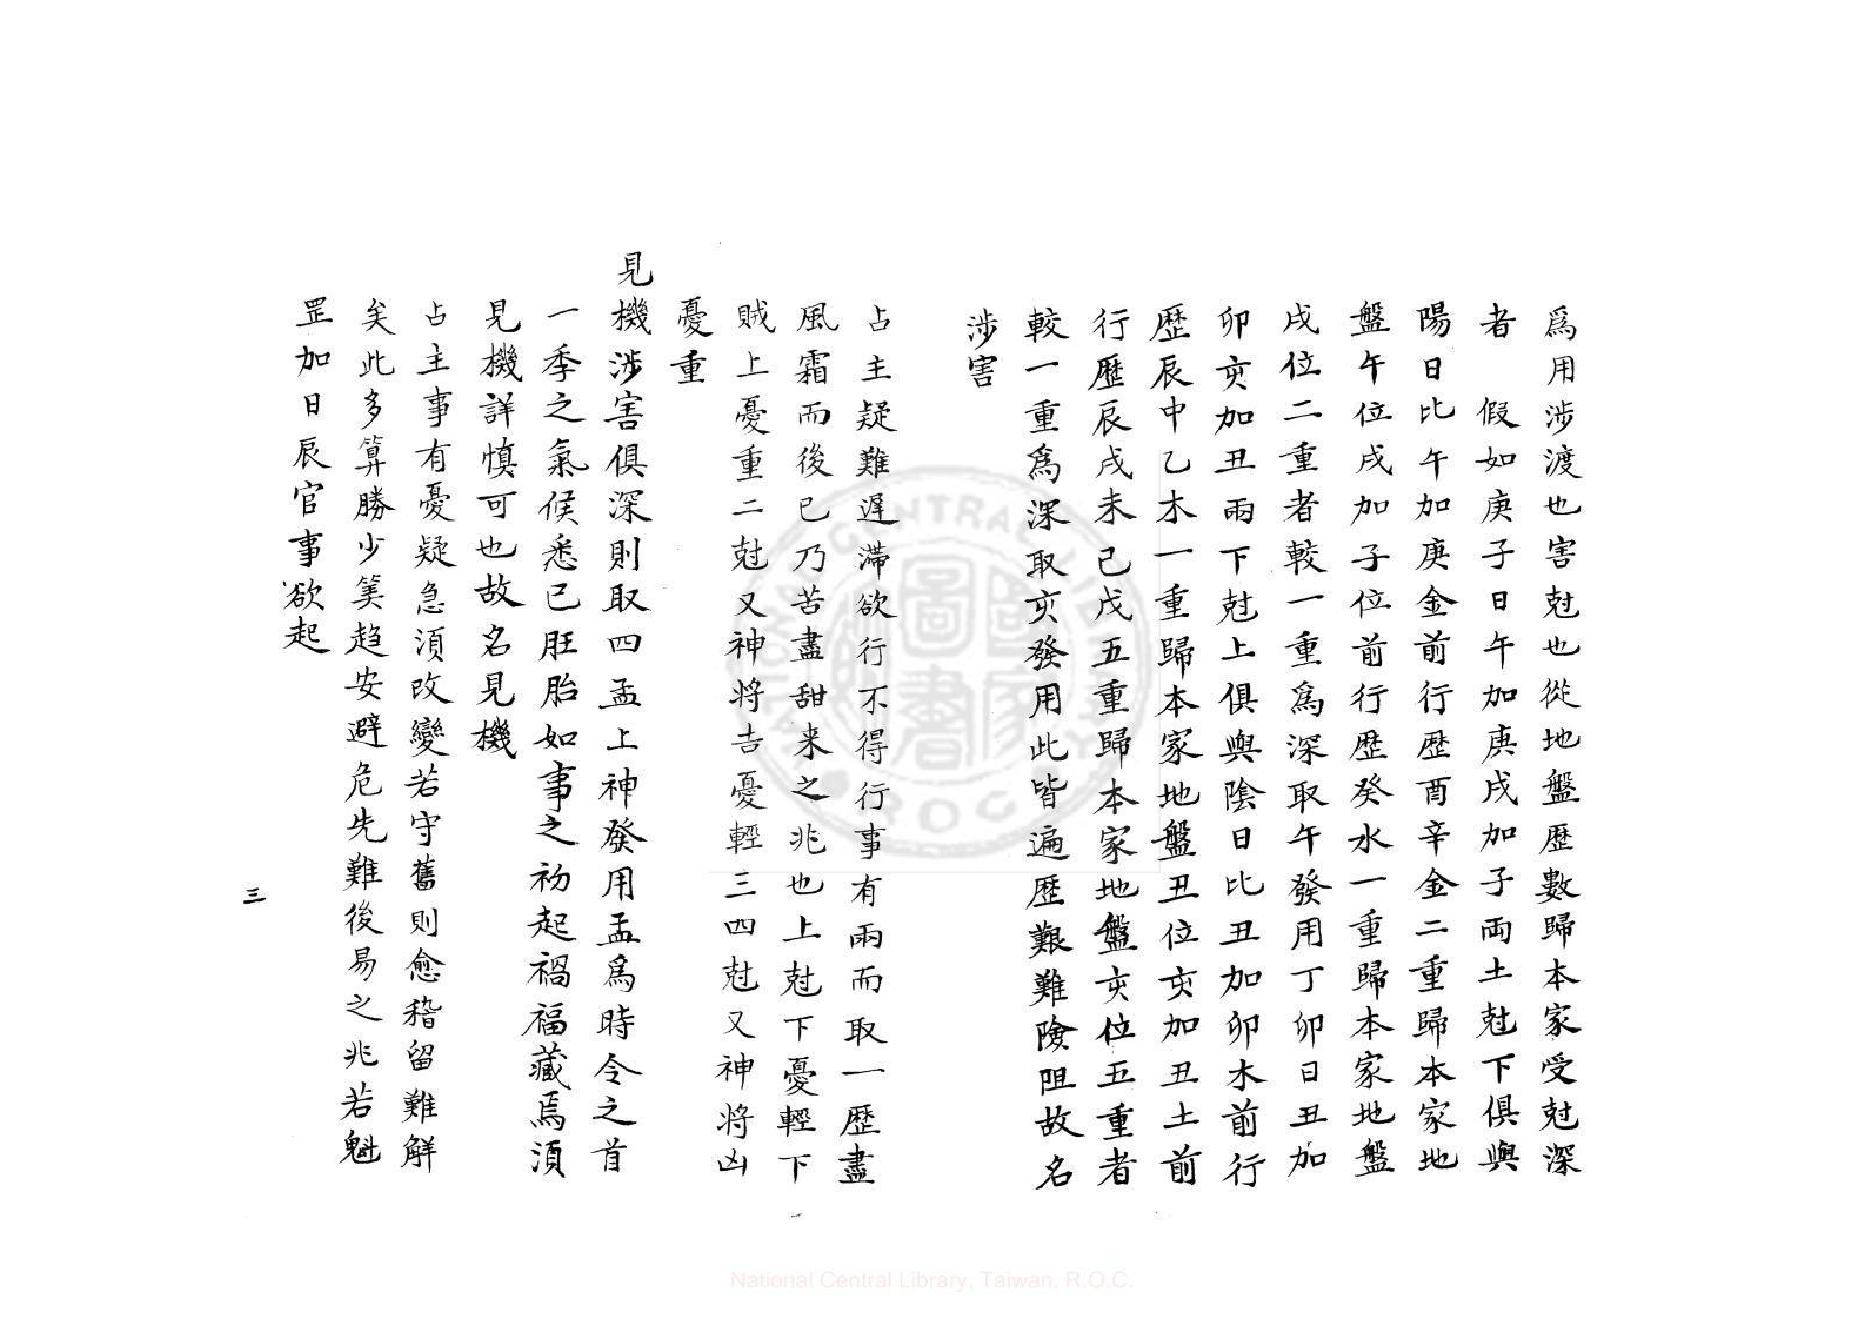 爲用涉渡也害尅也從地盤歷數歸本家受尅深
者　假如庚子日午加庚戌加子兩土尅下俱與
陽日比午加庚金前行歷酉辛金二重歸本家地
盤午位戌加子位前行歷癸水一重歸本家地盤
戌位二重者較一重爲深取午發用丁卯日丑加
卯亥加丑兩下尅上俱與陰日比丑加卯木前行
歷辰中乙木一重歸本家地盤丑位亥加丑土前
行歷辰戌未己戊五重歸本家地盤亥位五重者
較一重爲深取亥發用此皆遍歷艱難險阻故名
涉害
占主疑難遲滯欲行不得行事有兩而取一歷盡
風霜而後已乃苦盡甜来之兆也上尅下憂輕下
賊上憂重二尅又神將吉憂輕三四尅又神將凶
憂重
見機涉害俱深則取四孟上神發用孟爲時令之首
一季之氣候悉已胚胎如事之初起禍福藏焉須
見機詳慎可也故名見機
占主事有憂疑急須改變若守舊則愈稽留難解
矣此多算勝少筭趋安避危先難後易之兆若魁
罡加日辰官事欲起
三
National Central Library, Taiwan, R.O.C.